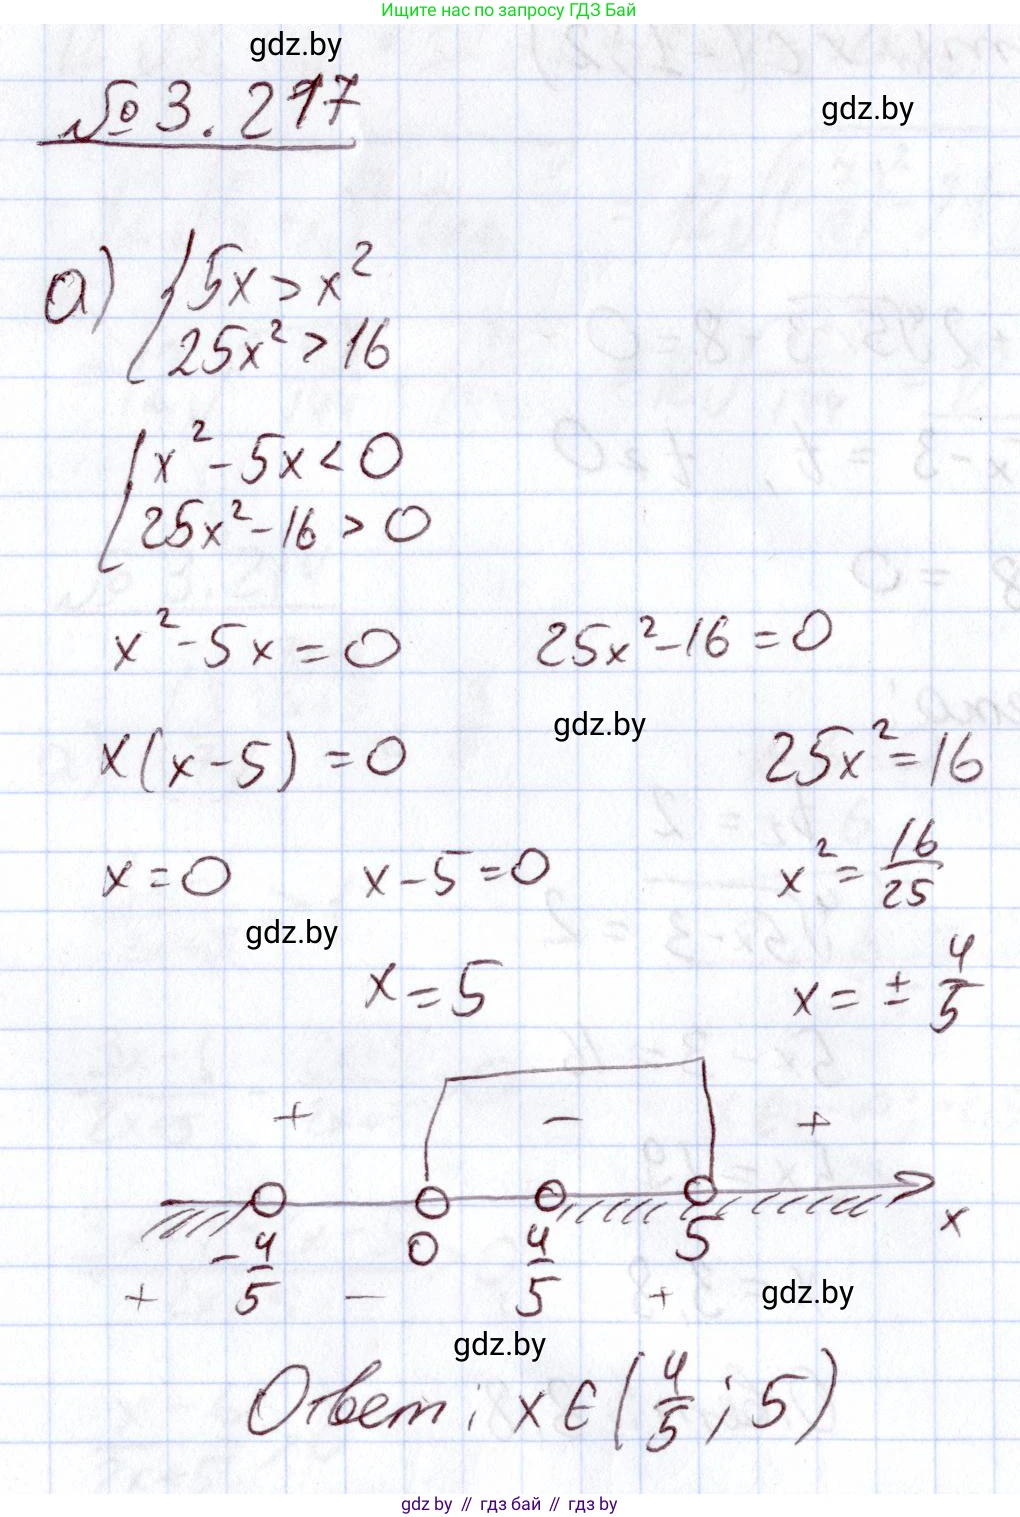 Ищите нас по запросу ГДЗ Бай
gdz.by
№ 3.217
gdz.by
а) { 5x > x²
25x² > 16
{ x² - 5x < 0
25x² - 16 > 0
x² - 5x = 0 25x² - 16 = 0
gdz.by
x(x - 5) = 0 25x² = 16
x = 0 x - 5 = 0 x² = 16/25
gdz.by
x = 5 x = ± 4/5
+ - +
-4/5 0 4/5 5 x
+ - +
gdz.by
gdz.by
Ответ: x ∈ (4/5; 5)
gdz by // гдз бай // gdz by